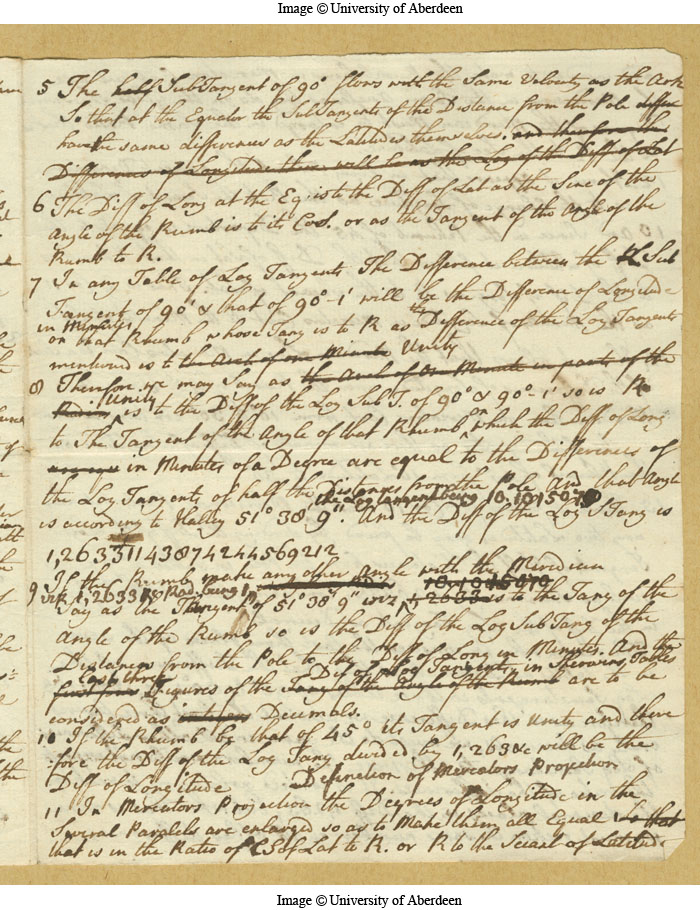 Image © University of Aberdeen
5 The half SubTangent of 90° flows with the Same Velocity as the Ark
So that at the Equator the SubTangents of the Distance from the Pole
have the same differences as the Latitudes themselves. and therefore the
Differences of Longitude there will be as the Log of the Diff of Lat
6 The Diff of Long at the Eq is to the Diff of Lat as the Sine of the
Angle of the Rumb is to its CoS. or as the Tangent of the Angle of the
Rumb to R.
7 In any Table of Log Tangents The Difference between the Sub
Tangent of 90° & that of 90°-1' will be the Difference of Longitude
in Minutes
on that Rhumb whose Tang is to R as the Difference of the Log Tangents
mentioned is to the Arch of one Minute Unity
8 Therefore we may Say as the Arch of One Minute in parts of the
Radius Unity is to the Diff of the Log SubT. of 90° & 90°-1' so is R
to The Tangent of the Angle of that Rhumb which the Diff of Long
in Minutes of a Degree are equal to the Differences of
the Log Tangents of half the Distances from the Pole And that Angle
the Log Tangent being 10.1015079
is according to Halley 51° 38' 9". And the Diff of the Log STang is
1,26331143874244569212
9 If the Rumb make any other Angle with the Meridian
viz 1,26331 & Rad being 1
Say as the Tangent of 51° 38' 9" viz 1,2633 is to the Tang of the
Angle of the Rumb so is the Diff of the Log SubTang of the
Distances from the Pole to the Diff of Long in Minutes. And the
last three Diff of the Log Tangents in Sherwins Tables
first four Figures of the Tang of the Angle of the Rumb are to be
considered as integers Decimals.
10 If the Rhumb be that of 45° its Tangent is Unity and there
fore the Diff of the Log Tang divided by 1,263 &c will be the
Diff of Longitude
Definition of Mercators Projection
11 In Mercators Projection the Degrees of Longitude in the
Several Paralels are enlarged so as to Make them all Equal So that
that is in the Ratio of CS of Lat to R. or R to the Secant of Latitude
Image © University of Aberdeen